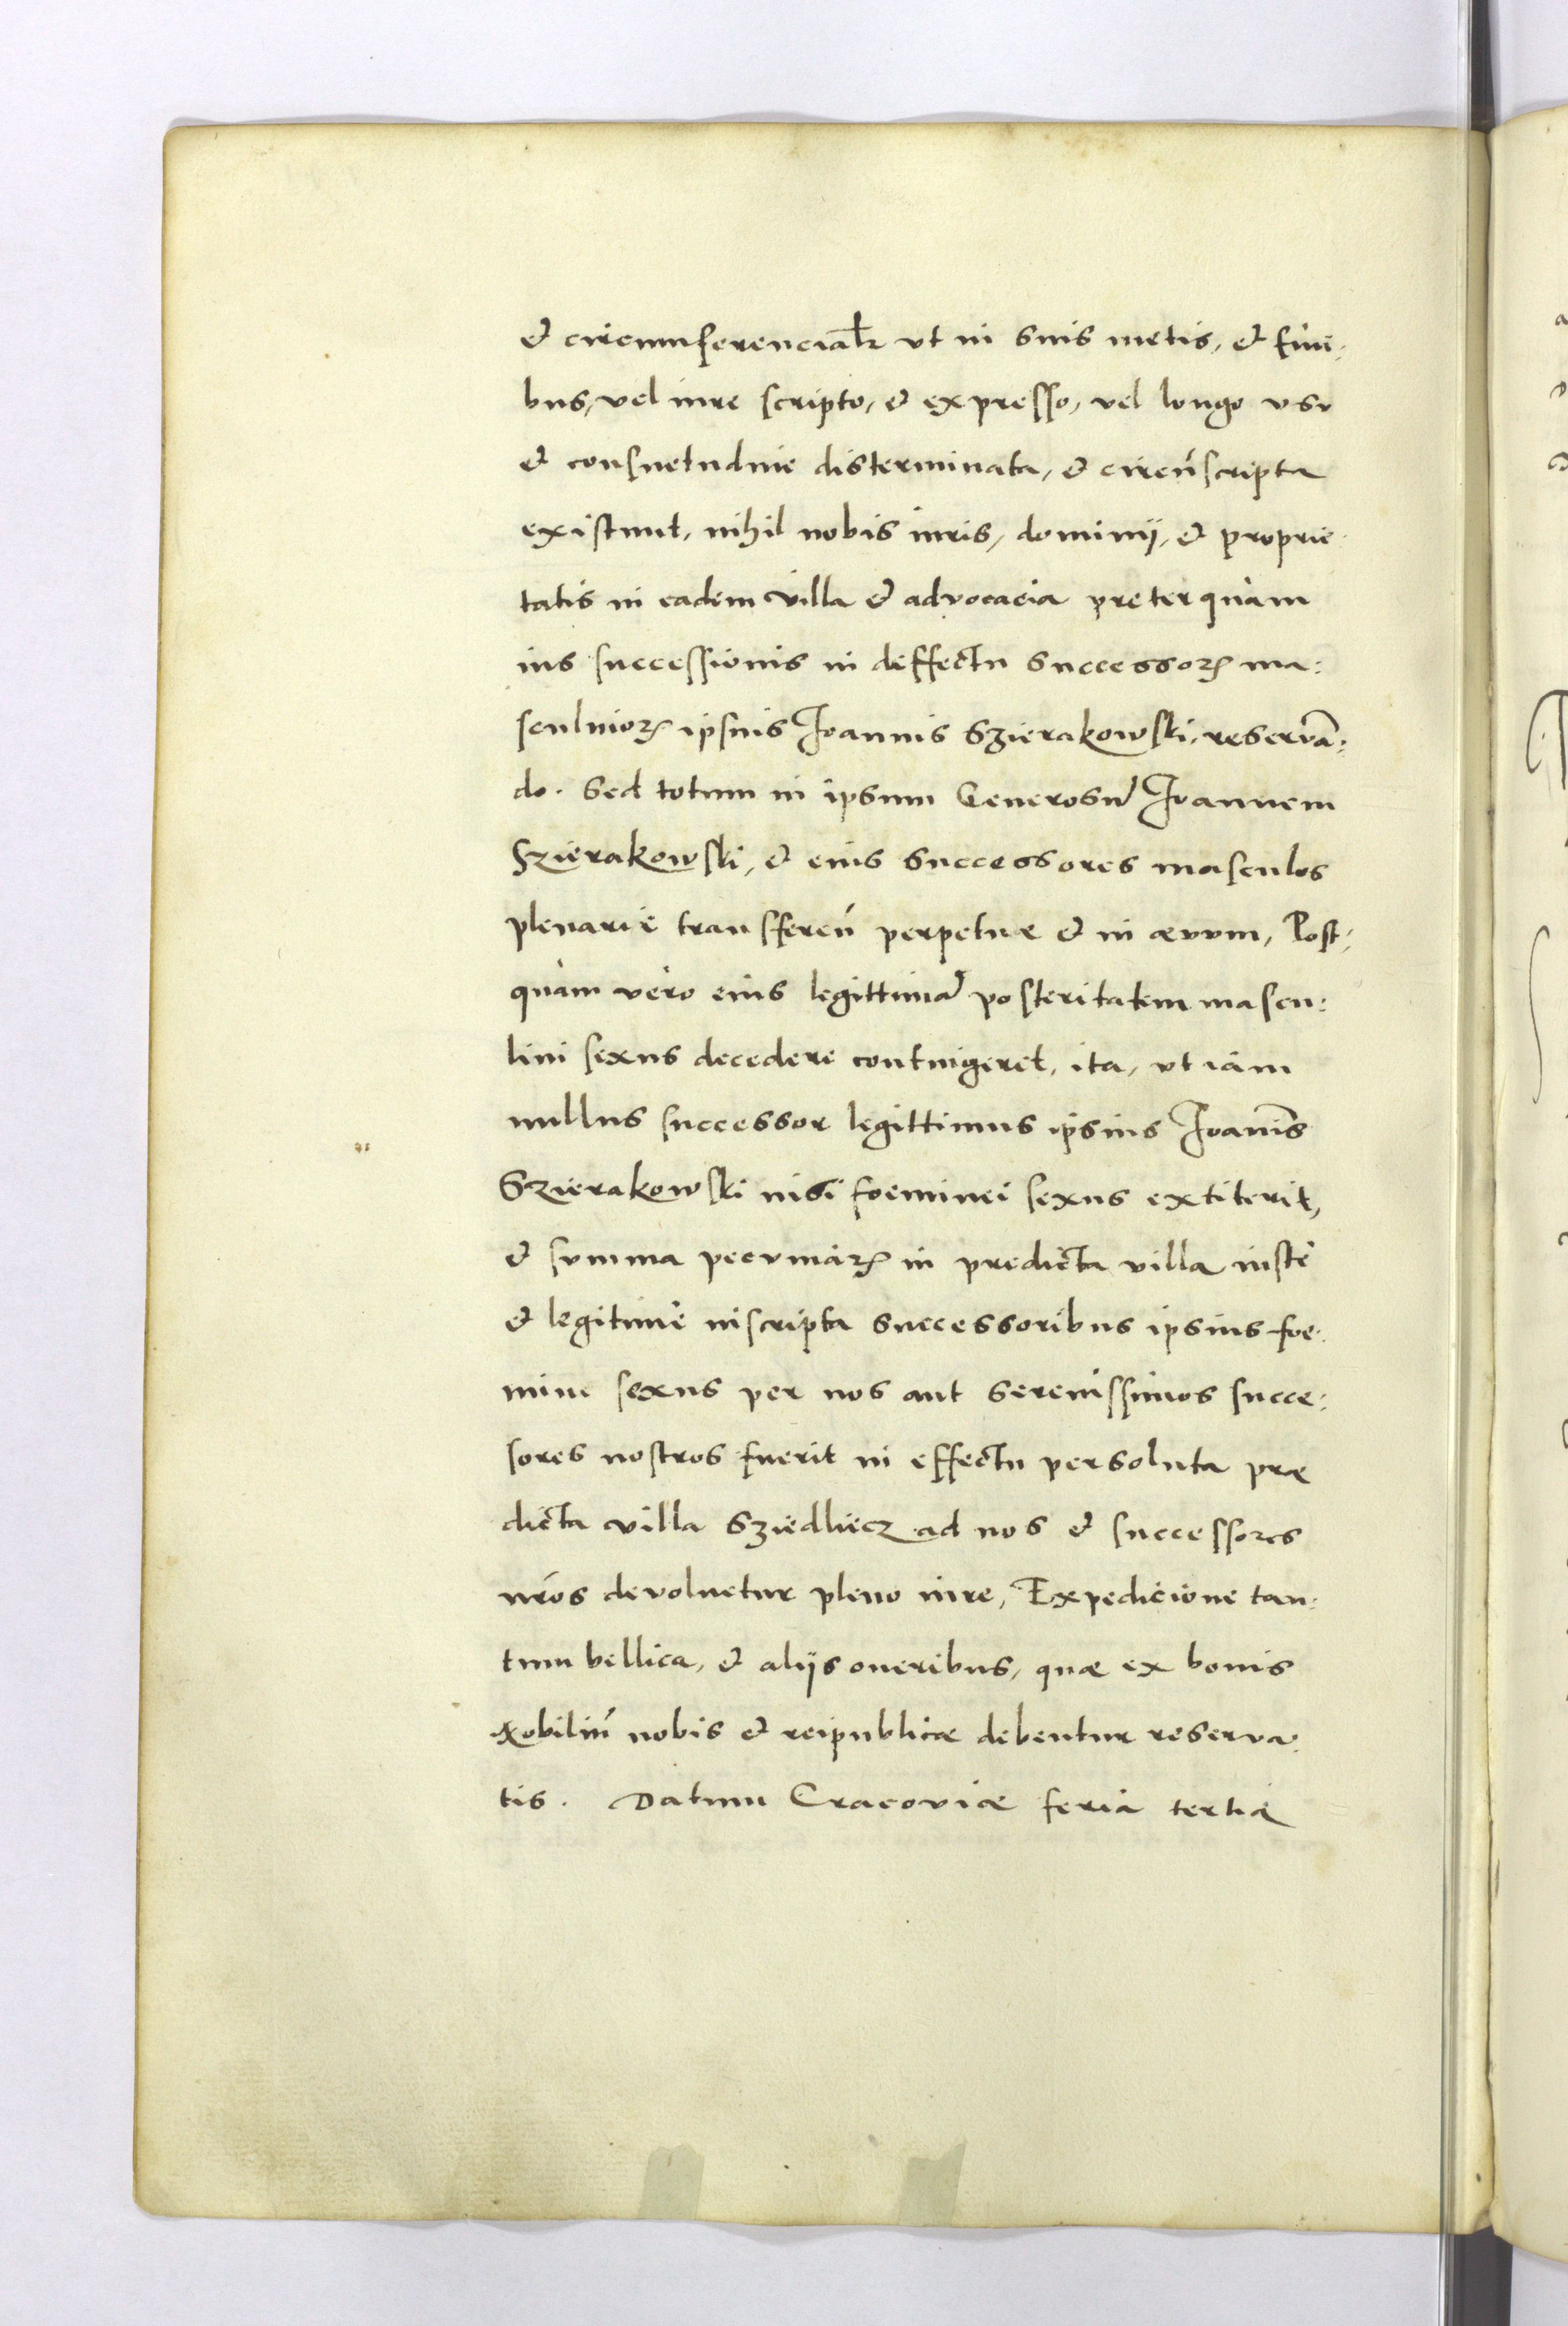 et circumferencialr vt in suis metis, et fini:
bus, vel iure scripto, et expresso, vel longo vsu
et consuetudine disterminata, et circũscripta
existunt, nihil nobis iuris, dominij, et proprie
tatis in eadem villa et advocacia preterquàm
ius successionis in deffectu successorꝝ ma:
sculinorꝝ ipsius Joannis Szierakowski, reservã:
do. Sed totum in ipsum Generosũ Joannem
Szierakowski, et eius successores masculos
plenariè transferẽn perpetuæ et in ævvm, Post:
quàm verò eius legittimã posteritatem mascu:
lini sexus decedere contingeret, ita, vt iàm
nullus successor legittimus ipsius Joanĩs
Szierakowski nisi foeminei sexus extiterit,
et svmma pecvniarꝝ in predicta villa iustè
et legitimè inscripta successoribus ipsius foe:
minei sexus per nos aut serenissimos succe:
sores nostros fuerit in effectu persoluta præ
dicta villa Sziedliecz ad nos et successores
nr̃os devoluetur pleno iure, Expedicione tan:
tum bellica, et alijs oneribus, quæ ex bonis
Nobiliũ nobis et reipublicæ debentur reserva:
tis. Datum Cracoviæ feria tertia